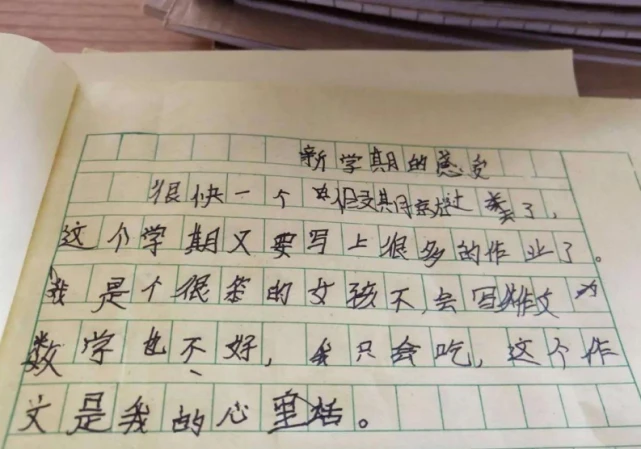 新学期的感受
很快一个假期就过去了，
这个学期又要写上很多的作业了。
我是个很笨的女孩不会写作文
数学也不好，我只会吃，这个作
文是我的心里话。